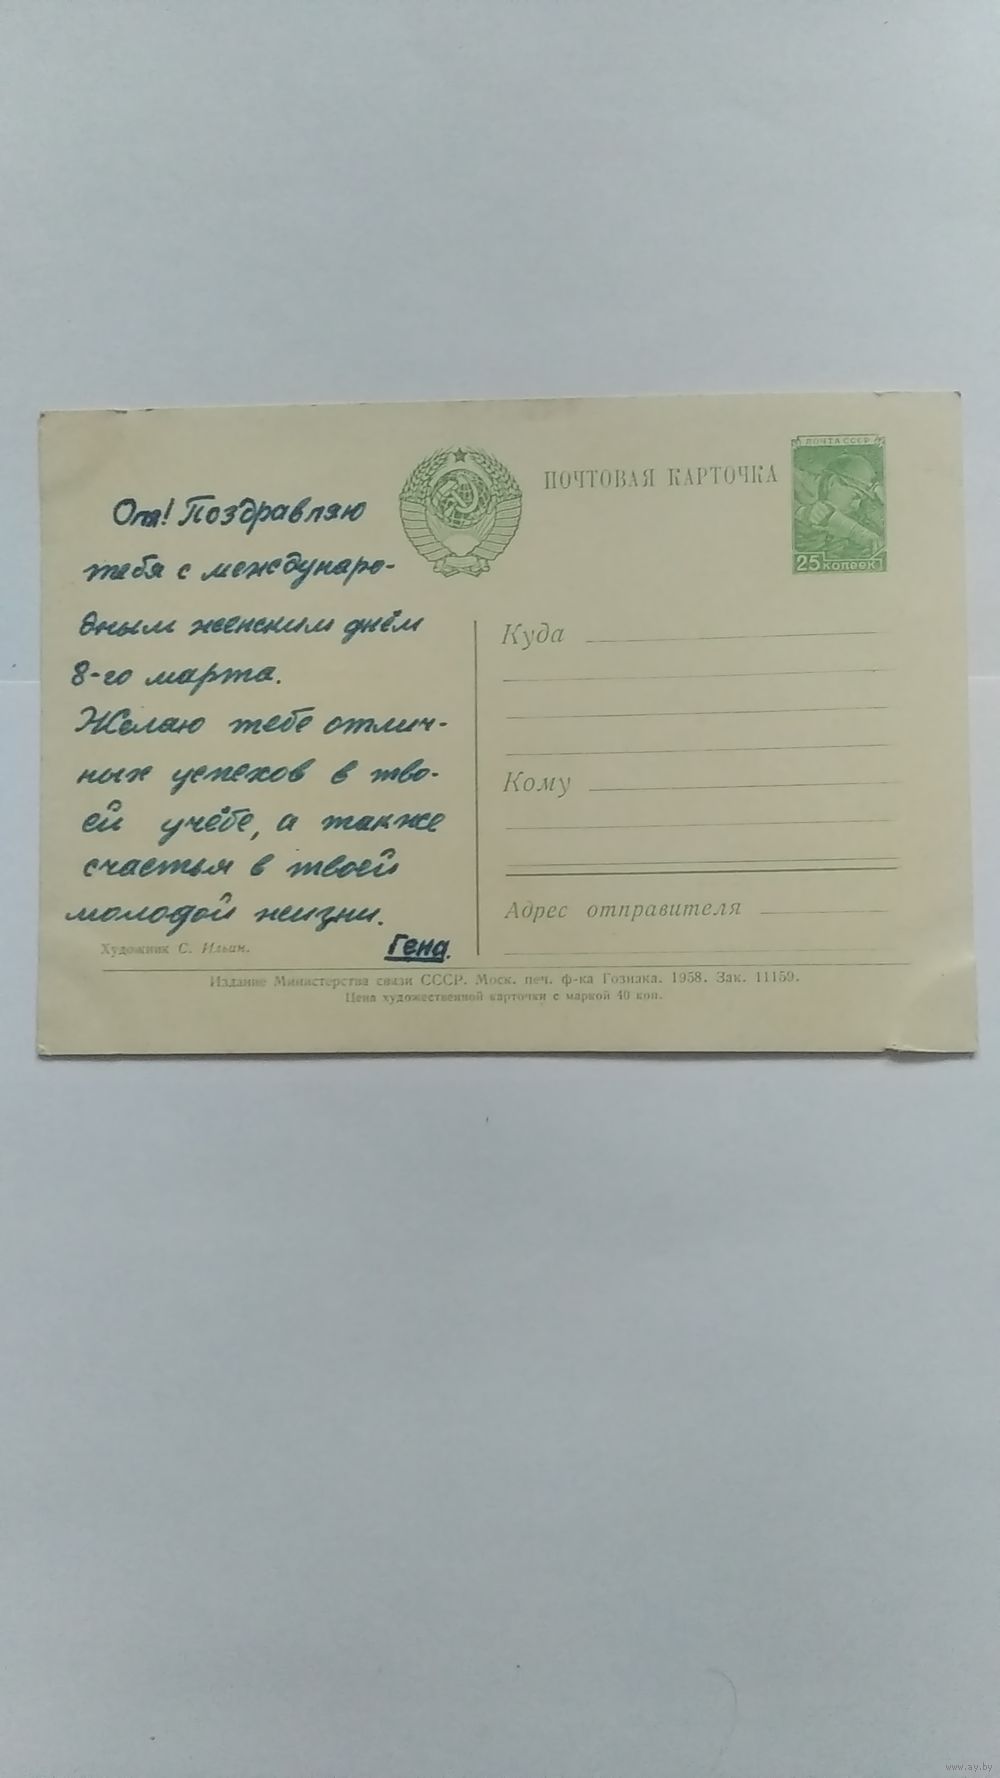 Оля! Поздравляю
тебя с междунаро-
дным женским днём
8-го марта.
Желаю тебе отлич-
ных успехов в тво-
ей учёбе, а также
счастья в твоей
молодой жизни.
Гена.
Художник С. Ильин.
ПОЧТОВАЯ КАРТОЧКА
ПОЧТА СССР
25 КОПЕЕК
Куда
Кому
Адрес отправителя
Издание Министерства связи СССР. Моск. печ. ф-ка Гознака. 1958. Зак. 11159.
Цена художественной карточки с маркой 40 коп.
www.ay.by